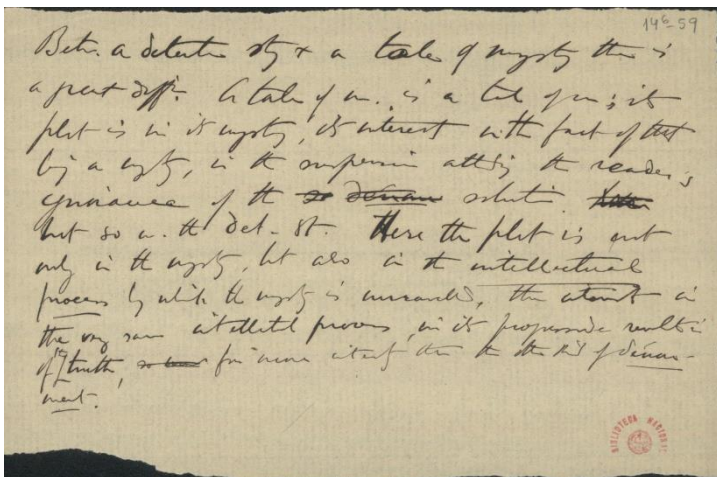 14⁶-59
Betw. a detective sty & a tale of mysty ther is
a great diffce. A tale of m. is a tale of m; its
plot is in its mysty, its interest in the fact of that
being a mysty, in the suspension attding the reader's
ignorance of the so dénoue solution
not so w. the det. st. Here the plot is not
only in the mysty, but also in the intellectual
process by which the mysty is unravelled, the interest in
the very same intellectl process, in its progressive
of the truth, far more intensity than the other kind of dénoue-
ment.
BIBLIOTECA NACIONAL